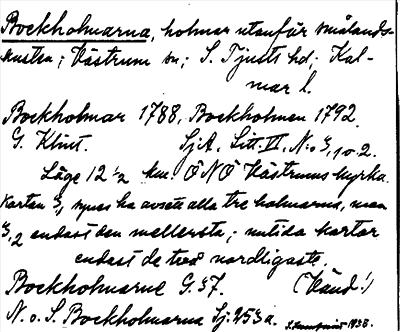 Bockholmarna, holmar utanför Smålands-
kusten; Västrum sn; S. Tjusts hd; Kal-
mar l.
Bockholmar 1788, Bockholmen 1792
G. Klint. Sj.A. Litt. VI, N:o 3, 1 o. 2.
Läge 12 ½ km. ÖNÖ Västrums kyrka.
Kartan 3,1 synes ha avsett alla tre holmarna, men
3,2 endast den mellersta; nutida kartor
endast de två nordligaste.
Bockholmarne G. 37. (Vänd!)
N. o. S. Bockholmarna Sj. 253 a. 1938.